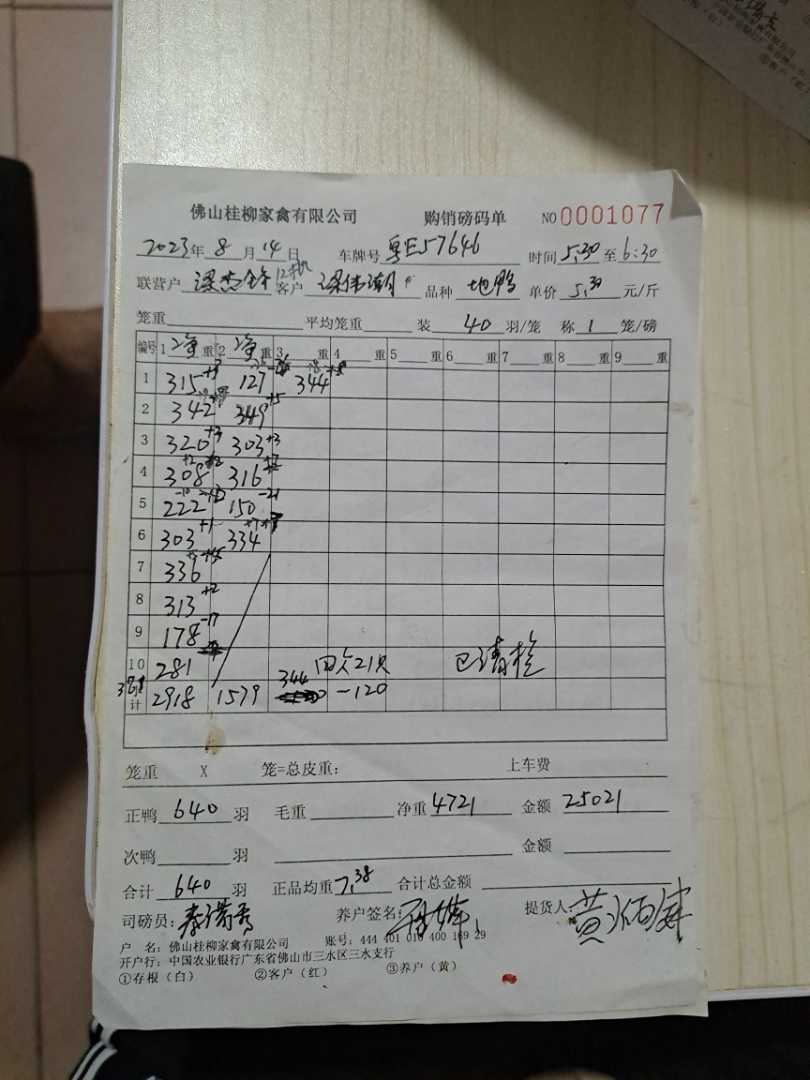 佛山桂柳家禽有限公司 购销磅码单 NO 0001077
2023年8月14日 车牌号 粤E57646 时间 5:30 至 6:30
联营户 客户 品种 地鸭 单价 5.30 元/斤
笼重 平均笼重 装 40 羽/笼 称 1 笼/磅
编号 1 净 重 2 净 重 3 重 4 重 5 重 6 重 7 重 8 重 9 重
1 315 127 344
2 342 349 +5
3 320 +3 303 +3
4 308 316
5 222 150 -21
6 303 +1 334
7 336
8 313 +2
9 178 -17
10 281 21只 已清栏
计 2918 1579 344 -120
笼重 X 笼=总皮重: 上车费
正鸭 640 羽 毛重 净重 4721 金额 25021
次鸭 羽 金额
合计 640 羽 正品均重 7.38 合计总金额
司磅员: 养户签名: 提货人:
户 名: 佛山桂柳家禽有限公司 账号: 444 401 010 400 169 29
开户行: 中国农业银行广东省佛山市三水区三水支行
①存根（白） ②客户（红） ③养户（黄）